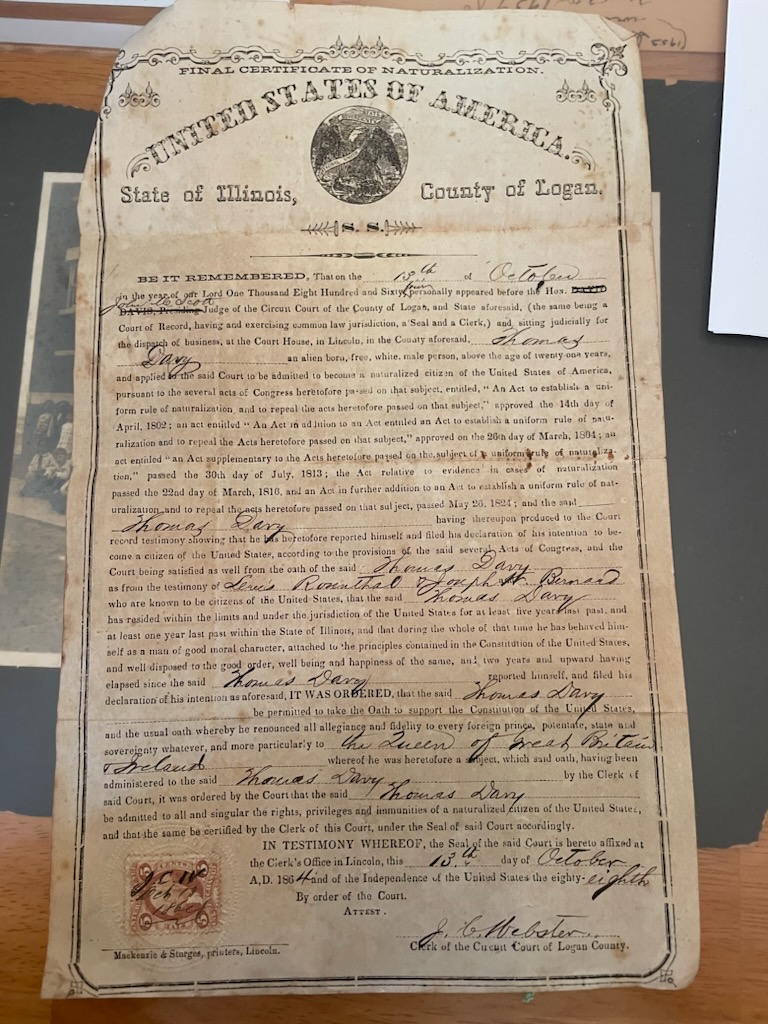 FINAL CERTIFICATE OF NATURALIZATION.
UNITED STATES OF AMERICA.
State of Illinois, County of Logan.
S. S.
BE IT REMEMBERED, That on the 13th of October
in the year of our Lord One Thousand Eight Hundred and Sixty four personally appeared before the Hon. DAVID
John M Scott
DAVIS, Presiding Judge of the Circuit Court of the County of Logan, and State aforesaid, (the same being a
Court of Record, having and exercising common law jurisdiction, a Seal and a Clerk,) and sitting judicially for
the dispatch of business, at the Court House, in Lincoln, in the County aforesaid, Thomas
Davy an alien born, free, white, male person, above the age of twenty-one years,
and applied to the said Court to be admitted to become a naturalized citizen of the United States of America,
pursuant to the several acts of Congress heretofore passed on that subject, entitled, "An Act to establish a uni-
form rule of naturalization, and to repeal the acts heretofore passed on that subject," approved the 14th day of
April, 1802; an act entitled "An Act in addition to an Act entitled an Act to establish a uniform rule of natu-
ralization and to repeal the Acts heretofore passed on that subject," approved on the 26th day of March, 1804; an
act entitled "an Act supplementary to the Acts heretofore passed on the subject of a uniform rule of naturaliza-
tion," passed the 30th day of July, 1813; the Act relative to evidence in cases of naturalization
passed the 22nd day of March, 1816, and an Act in further addition to an Act to establish a uniform rule of nat-
uralization and to repeal the acts heretofore passed on that subject, passed May 26, 1824; and the said
Thomas Davy having thereupon produced to the Court
record testimony showing that he has heretofore reported himself and filed his declaration of his intention to be-
come a citizen of the United States, according to the provisions of the said several Acts of Congress, and the
Court being satisfied as well from the oath of the said Thomas Davy
as from the testimony of Lewis Rosenthal & Joseph H. Bernard
who are known to be citizens of the United States, that the said Thomas Davy
has resided within the limits and under the jurisdiction of the United States for at least five years last past, and
at least one year last past within the State of Illinois, and that during the whole of that time he has behaved him-
self as a man of good moral character, attached to the principles contained in the Constitution of the United States,
and well disposed to the good order, well being and happiness of the same, and two years and upward having
elapsed since the said Thomas Davy reported himself, and filed his
declaration of his intention as aforesaid, IT WAS ORDERED, that the said Thomas Davy
be permitted to take the Oath to support the Constitution of the United States,
and the usual oath whereby he renounced all allegiance and fidelity to every foreign prince, potentate, state and
sovereignty whatever, and more particularly to the Queen of Great Britain
& Ireland whereof he was heretofore a subject, which said oath, having been
administered to the said Thomas Davy by the Clerk of
said Court, it was ordered by the Court that the said Thomas Davy
be admitted to all and singular the rights, privileges and immunities of a naturalized citizen of the United States,
and that the same be certified by the Clerk of this Court, under the Seal of said Court accordingly.
IN TESTIMONY WHEREOF, the Seal of the said Court is hereto affixed at
the Clerk's Office in Lincoln, this 13th day of October
A.D. 1864 and of the Independence of the United States the eighty-eighth
By order of the Court.
ATTEST.
J. C. Webster
Clerk of the Circuit Court of Logan County.
J. C. W
Mackenzie & Sturges, printers, Lincoln.